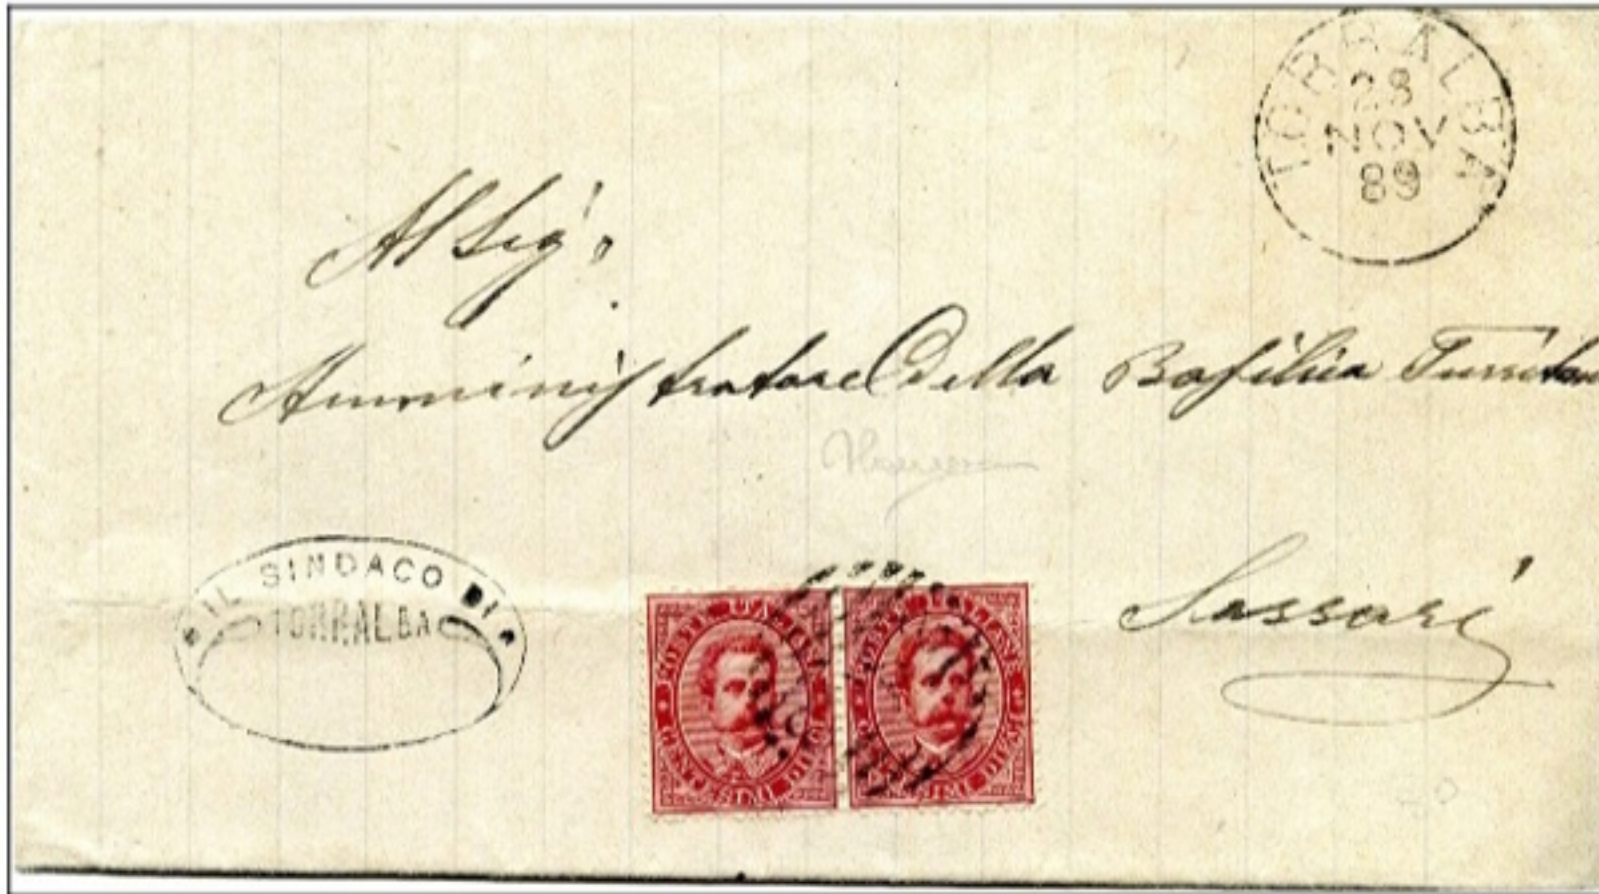 TORRALBA
28
NOV
89
Al Sig.
Amministratore Della Basilica Turritana
IL SINDACO DI
TORRALBA
Sassari
POSTE ITALIANE CENTESIMI DIECI
POSTE ITALIANE CENTESIMI DIECI